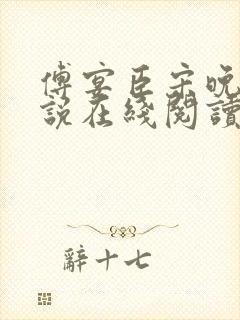 傅宴臣宋晚
説在綫閱讀
辭十七